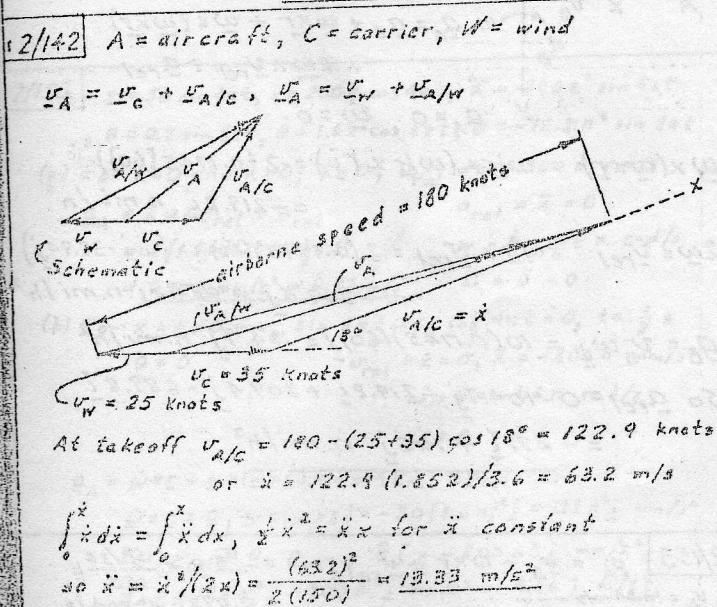 2/142 A = aircraft, C = carrier, W = wind
v_A = v_C + v_A/C, v_A = v_W + v_A/W
v_A/W
v_A
v_A/C
v_W v_C
Schematic
airborne speed = 180 knots
x
v_A
v_A/W
v_A/C = ẋ
18°
v_C = 35 knots
v_W = 25 knots
At takeoff v_A/C = 180 - (25+35) cos 18° = 122.9 knots
or ẋ = 122.9 (1.852)/3.6 = 63.2 m/s
∫₀^ẋ ẋ dẋ = ∫₀^x ẍ dx, ½ ẋ² = ẍx for ẍ constant
so ẍ = ẋ²/(2x) = (63.2)²/2(150) = 13.33 m/s²